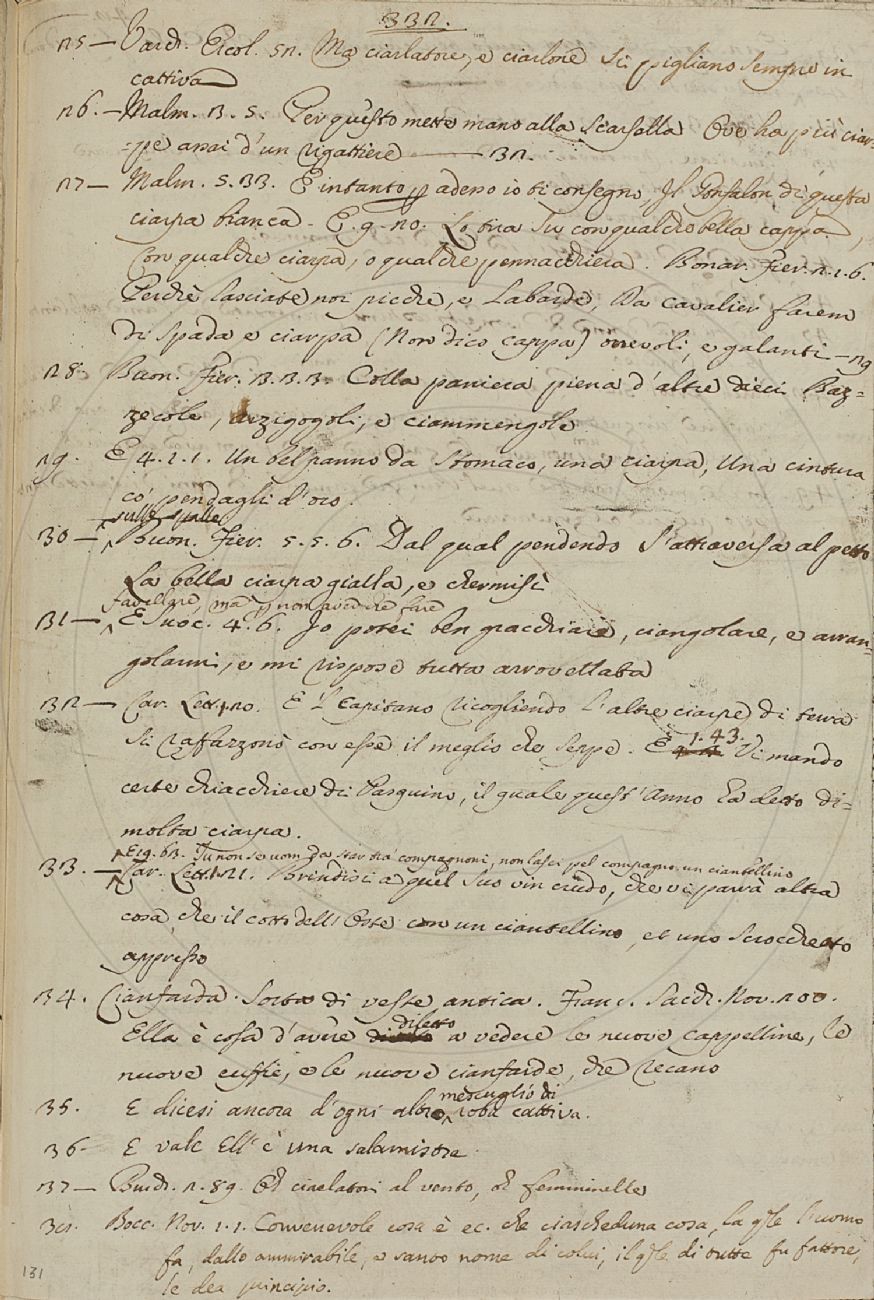 332.
25 — Varch. Ercol. 52. Ma ciarlatore, e ciarlone si pigliano sempre in
cattiva
26. — Malm. 3. 5. Per questo mette mano alla scarsella Ove ha più ciar-
-pe assai d'un rigattiere — 32.
27 — Malm. 5. 33. E intanto p adesso io ti consegno Il Gonfalon di questa
ciarpa bianca - E. 9. 20. Lo tira su con qualche bella cappa,
Con qualche ciarpa, o qualche pennacchiera. Bonar. Fier. 2. 1. 6.
Perchè lasciate noi picche, e Labarde, Da cavalier farem
di spada e ciarpa (Non dico cappa) orrevoli, e galanti — 29
28. Buon. Fier. 3. 3. 3. Colla paniera piena d'altre dieci Baz=
zecole, arzigogoli, e ciammengole
29. E 4. 2. 1. Un bel panno da stomaco, una ciarpa, Una cintura
co' pendagli d'oro.
sulle spalle
30 — Buon. Fier. 5. 5. 6. Dal qual pendendo s'attraversa al petto
La bella ciarpa gialla, e chermisi
favellare, ma p non aver che fare
31 — E Suoc. 4. 6. Io potei ben gracchiare, ciangolare, e arran-
golarmi, e mi rispose tutta arrovellata
32 — Car. Lett. 1. 20. E 'l Capitano ricogliendo l'altre ciarpe di terra
si raffazzonò con esse il meglio che seppe. E 1. 43. Vi mando
certe chiacchiere di Pasquino, il quale quest'Anno ha detto di=
molta ciarpa.
E 19. 63. Tu non se' uom da star tra' compagnoni, non lasci pel compagno un ciantellino
33. — Car. Lett. 1. 21. Brindisi a quel suo vin crudo, che vi parrà altra
cosa che il cotto dell'Oste con un ciantellino, et uno scrocchetto
appresso
34. Cianfarda. Sorta di veste antica. Franc. Sacch. Nov. 200.
diletto
Ella è cosa d'avere a vedere le nuove cappelline, le
nuove cuffie, e le nuove cianfarde, che recano
mescuglio di
35. E dicesi ancora d'ogni altro roba cattiva.
36 - E vale Ell'è una salamistra
37 — Burch. 2. 89. Oh ciarlatori al vento, oh femminelle
38. Bocc. Nov. 1. 1. Convenevole cosa è ec. che ciascheduna cosa, la qle l'uomo
fa, dallo ammirabile, e santo nome di colui, il qle di tutte fu fattore,
le dea principio.
131